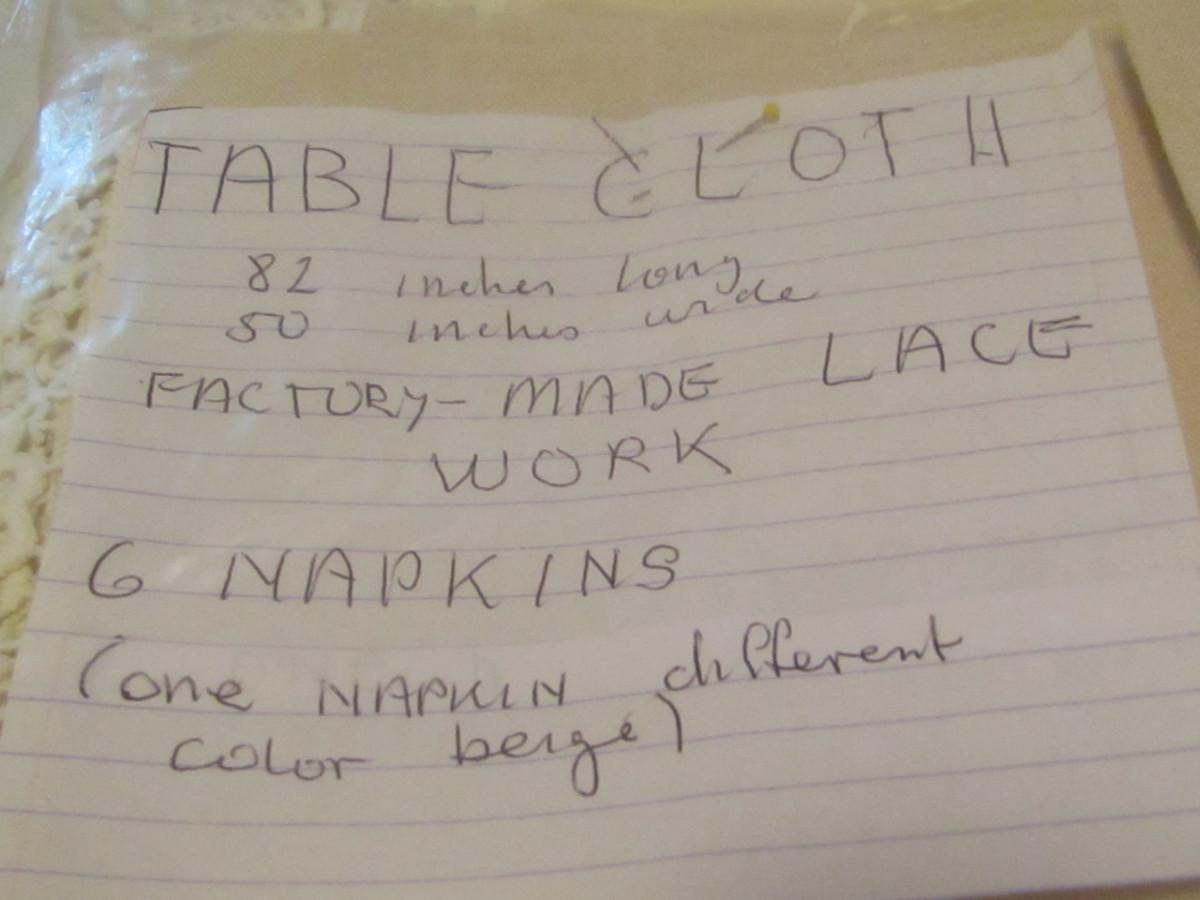 TABLE CLOTH
82 inches long
50 inches wide
FACTORY-MADE LACE
WORK
6 NAPKINS
(one NAPKIN different
color beige)